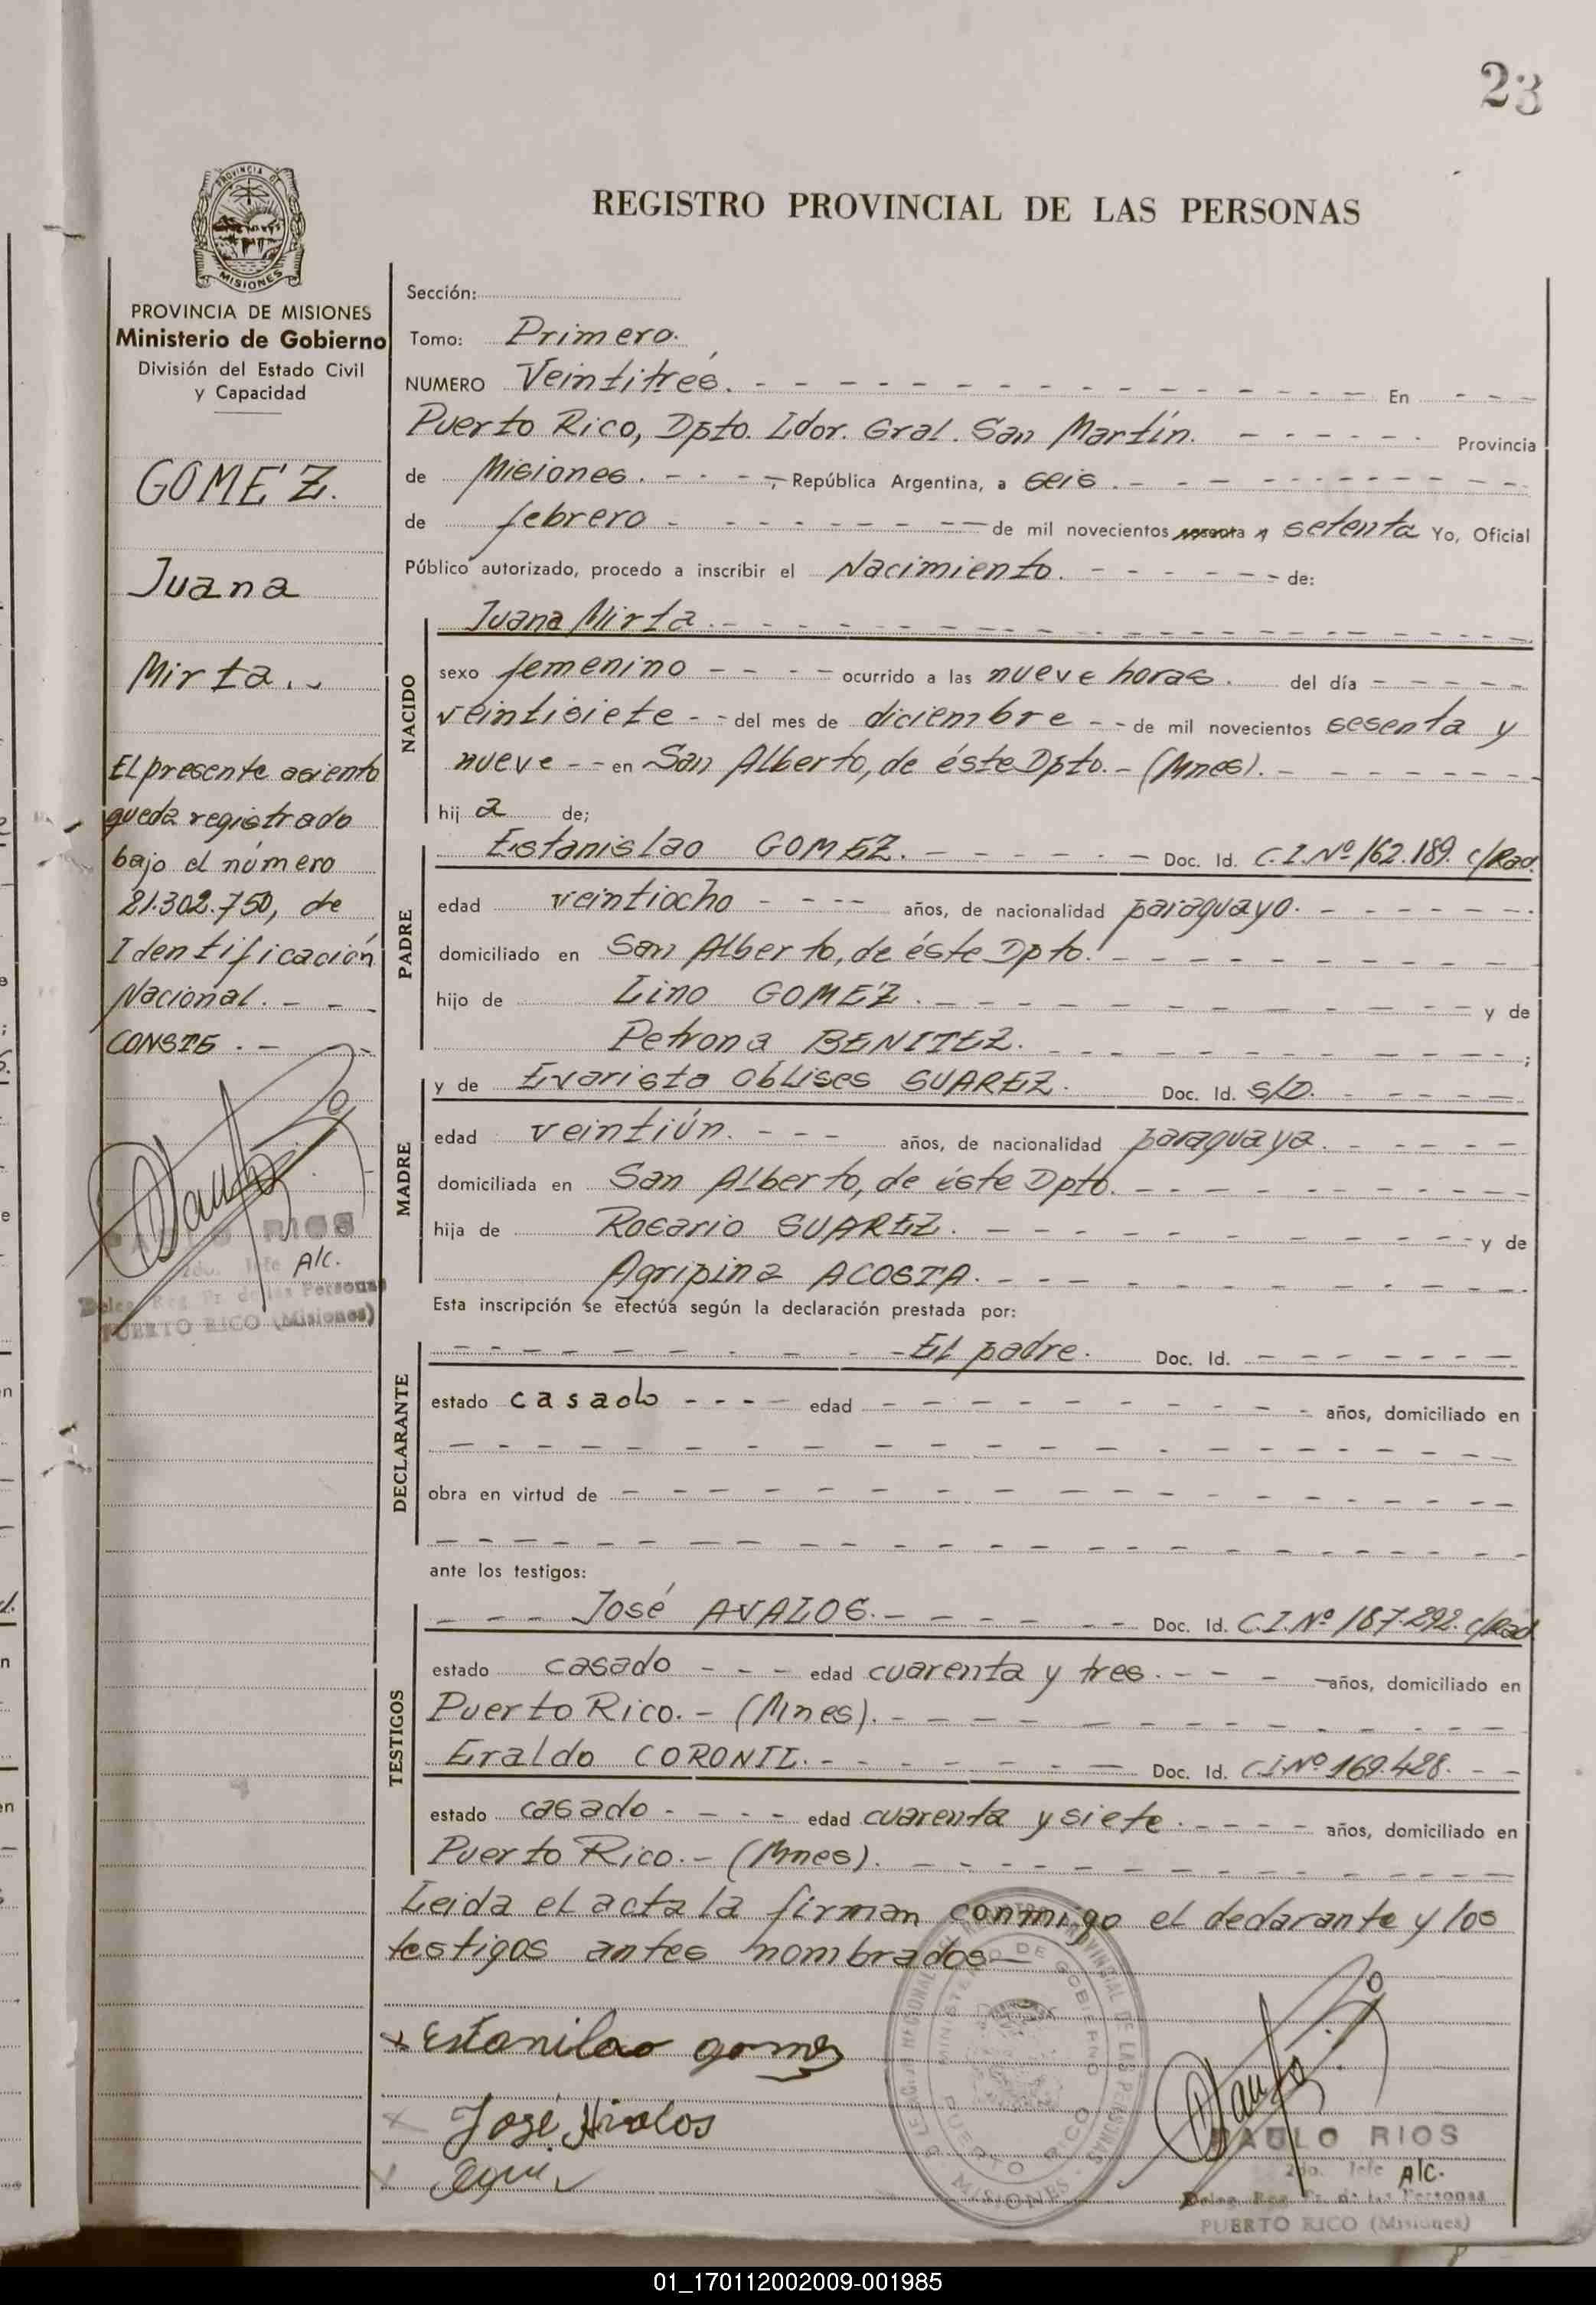 23
PROVINCIA DE
MISIONES
REGISTRO PROVINCIAL DE LAS PERSONAS
PROVINCIA DE MISIONES
Ministerio de Gobierno
División del Estado Civil
y Capacidad
GOMEZ.
Juana
Mirta.
El presente asiento
queda registrado
bajo el número
21.302.750, de
Identificación
Nacional. - -
CONSTE. -
RIOS
2do. Jefe A/c.
Deleg. Reg. Pr. de las Personas
PUERTO RICO (Misiones)
Sección:
Tomo: Primero.
NUMERO Veintitrés. - - - En - - -
Puerto Rico, Dpto. Ldor. Gral. San Martín. - - - Provincia
de Misiones. - - - República Argentina, a seis. - - -
de febrero - - - de mil novecientos setenta Yo, Oficial
Público autorizado, procedo a inscribir el Nacimiento. - - - de:
NACIDO
Juana Mirta. - - -
sexo femenino - - - ocurrido a las nueve horas. del día - - -
veintisiete - - del mes de diciembre - - de mil novecientos sesenta y
nueve - - en San Alberto, de éste Dpto. - (Mnes). - - -
hij a de;
PADRE
Estanislao GOMEZ. - - - Doc. Id. C.I.Nº 162.189. c/Rad.
edad veintiocho - - - años, de nacionalidad paraguayo. - - -
domiciliado en San Alberto, de éste Dpto. - - -
hijo de Lino GOMEZ. - - - y de
Petrona BENITEZ. - - - ;
MADRE
y de Evarista Oblises SUAREZ. Doc. Id. S/D. - - -
edad veintiún. - - - años, de nacionalidad paraguaya. - - -
domiciliada en San Alberto, de éste Dpto. - - -
hija de Rosario SUAREZ. - - - y de
Agripina ACOSTA. - - -
Esta inscripción se efectúa según la declaración prestada por:
DECLARANTE
- - - El padre. Doc. Id. - - -
estado casado - - - edad - - - años, domiciliado en
- - -
obra en virtud de - - -
- - -
ante los testigos:
TESTIGOS
- - - José AVALOS. - - - Doc. Id. C.I.Nº 187.292. c/Rad.
estado casado - - - edad cuarenta y tres. - - - años, domiciliado en
Puerto Rico. - (Mnes). - - -
Eraldo CORONIL. - - - Doc. Id. C.I.Nº 169.428. - -
estado casado - - - edad cuarenta y siete. - - - años, domiciliado en
Puerto Rico. - (Mnes). - - -
Leida el acta la firman conmigo el declarante y los
testigos antes nombrados -
Estanilao gomez
José Avalos
MINISTERIO DE GOBIERNO
PUERTO RICO
MISIONES
PABLO RIOS
2do. Jefe A/c.
Deleg. Reg. Pr. de las Personas
PUERTO RICO (Misiones)
01_170112002009-001985